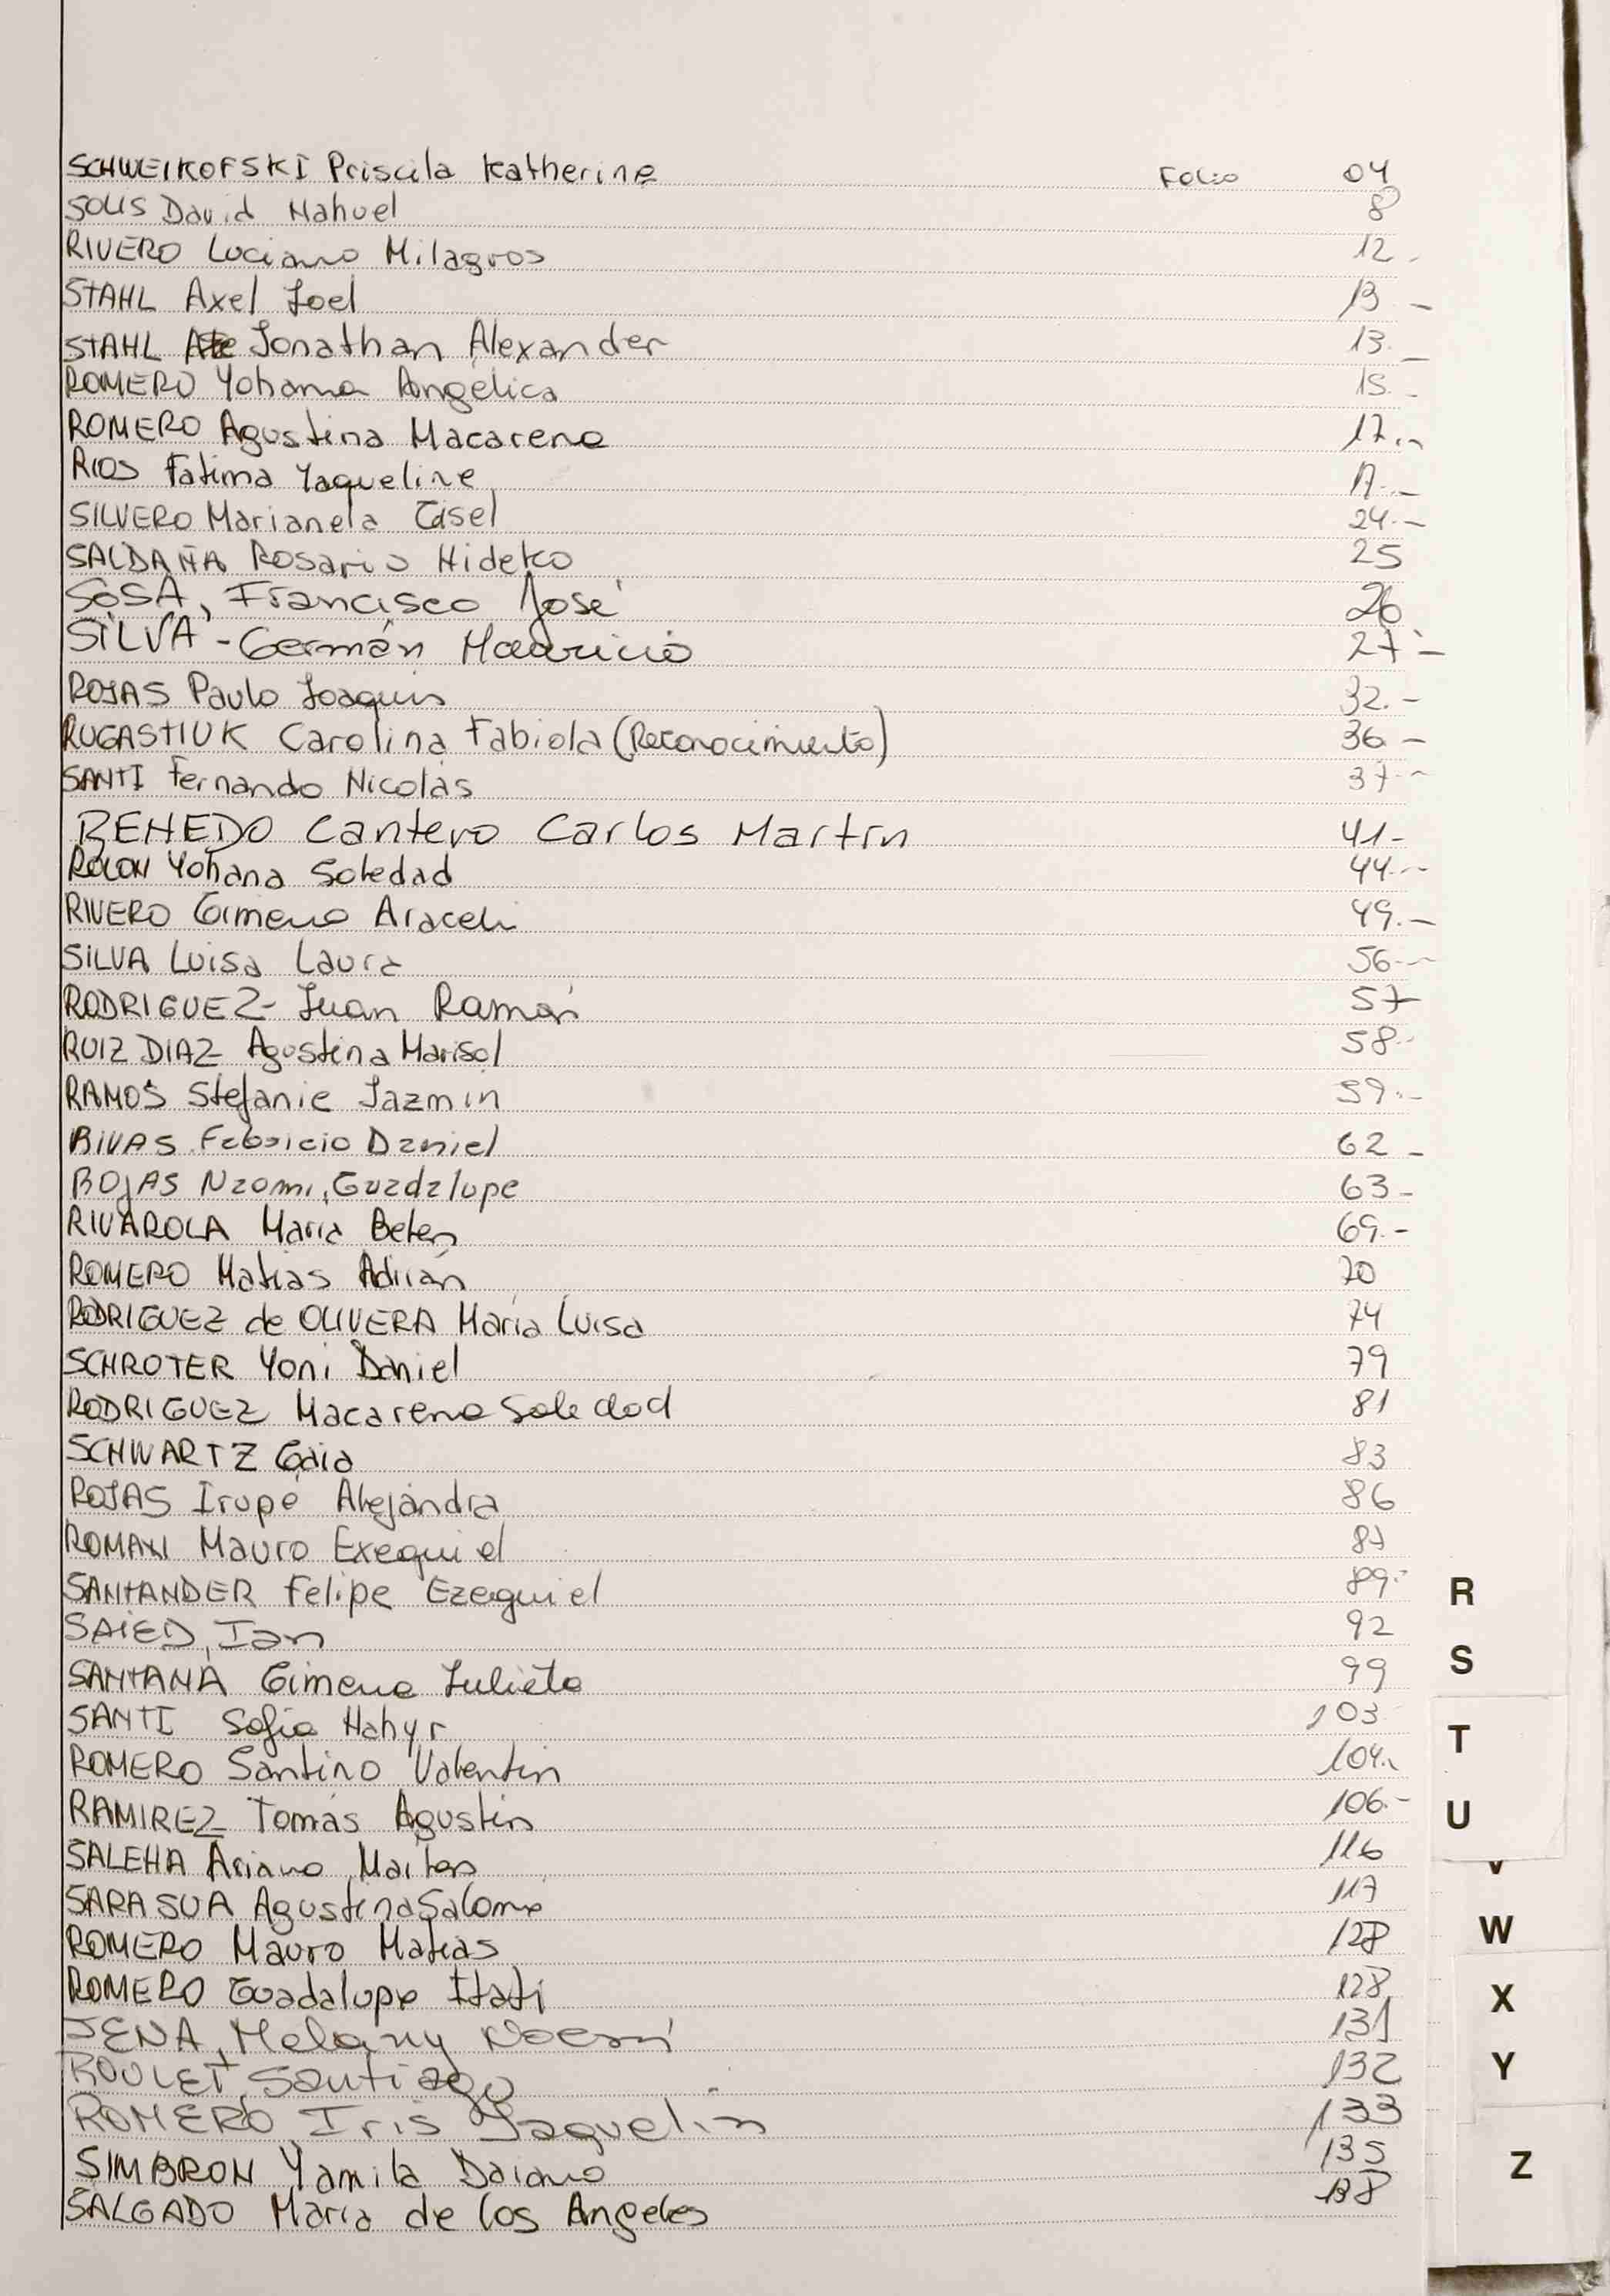 SCHWEIKOFSKI Priscila Katherine Folio 04
SOLIS David Nahuel 8
RIVERO Luciano Milagros 12.
STAHL Axel Joel 13 -
STAHL Jonathan Alexander 13. -
ROMERO Yohana Angélica 15. -
ROMERO Agustina Macarena 17.-
RIOS Fatima Yaqueline 17.-
SILVERO Marianela Gisel 24.-
SALDAÑA Rosario Hideko 25
SOSA, Francisco José 26
SILVA - Germán Mauricio 27 -
ROJAS Paulo Joaquin 32.-
RUGASTIUK Carolina Fabiola (Reconocimiento) 36 -
SANTI Fernando Nicolás 37-
BENEDO Cantero Carlos Martín 41-
ROLON Yohana Soledad 44.-
RIVERO Gimena Araceli 49.-
SILVA Luisa Laura 56-
RODRIGUEZ- Juan Ramón 57
RUIZ DIAZ Agostina Marisol 58-
RAMOS Stefanie Jazmin 59.-
RIVAS Fabricio Daniel 62 -
ROJAS Naomi, Guadalupe 63 -
RIVAROLA Maria Belen 69.-
ROMERO Matias Adrián 70
RODRIGUEZ de OLIVERA María Luisa 74
SCHROTER Yoni Daniel 79
RODRIGUEZ Macarena Soledad 81
SCHWARTZ Gaia 83
ROJAS Irupé Alejandra 86
ROMANI Mauro Exequiel 87
SANTANDER Felipe Ezequiel 89-
SAIED, Ian 92
SANTANA Gimena Julieta 99
SANTI Sofia Nahyr 103
ROMERO Santino Valentin 104.
RAMIREZ Tomás Agustin 106.-
SALEHA Ariana Mailen 116
SARASUA Agustina Salome 117
ROMERO Mauro Matias 128
ROMERO Guadalupe Itati 128
SENA, Melany Noemí 131
ROULET, Santiago 132
ROMERO, Iris Jaquelin 133
SIMBRON Yamila Daiana 135
SALGADO María de los Angeles 138
R
S
T
U
V
W
X
Y
Z